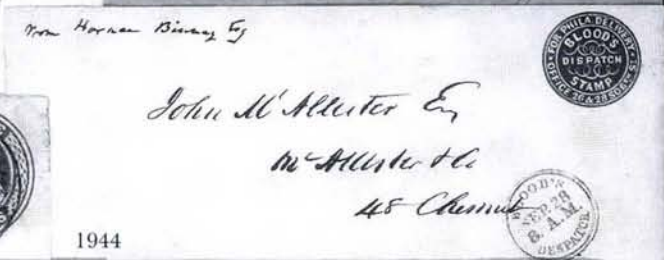 from Horace Binney Esq
FOR PHILA DELIVERY
BLOOD'S
DISPATCH
STAMP
OFFICE 26 & 28 SO. 6TH ST.
John McAllister Esq
McAllister & Co
48 Chesnut
BLOOD'S
SEP. 28
8 A.M.
DESPATCH
1944